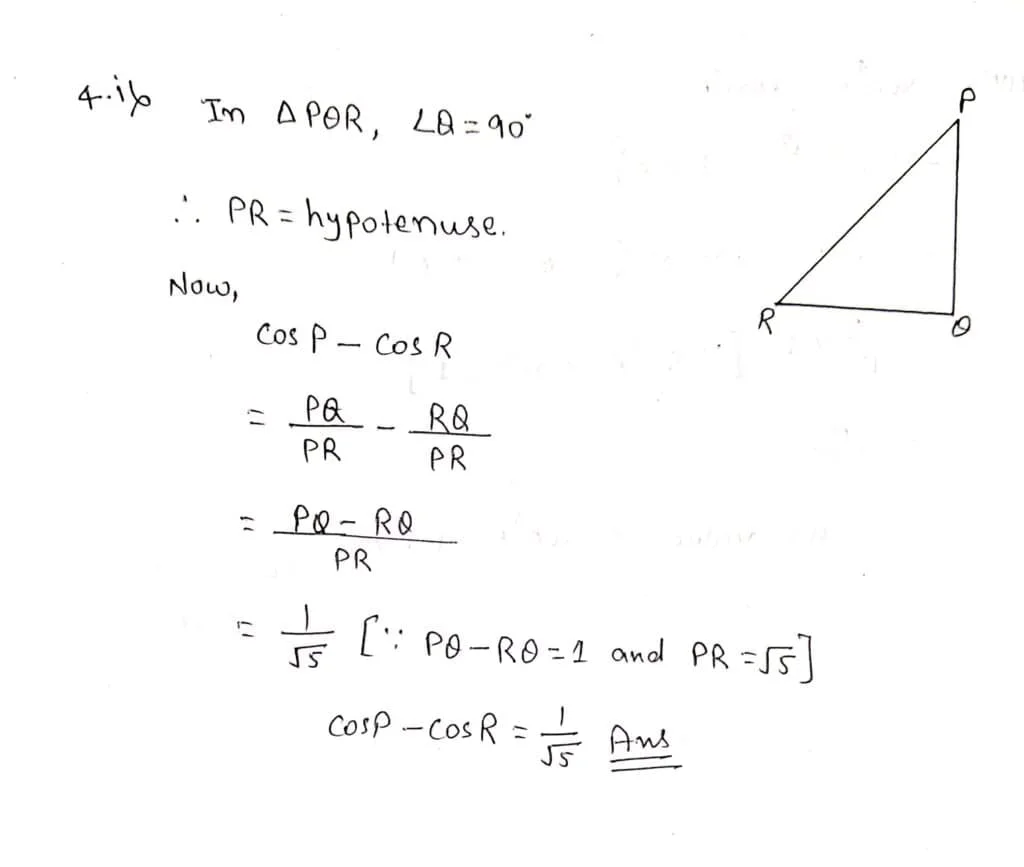 4.ib In Δ PQR, ∠Q = 90°
P
∴ PR = hypotenuse.
Now,
R Q
cos P – cos R
= PQ/PR – RQ/PR
= PQ – RQ/PR
= 1/√5 [∵ PQ – RQ = 1 and PR = √5]
cosP – cosR = 1/√5 Ans